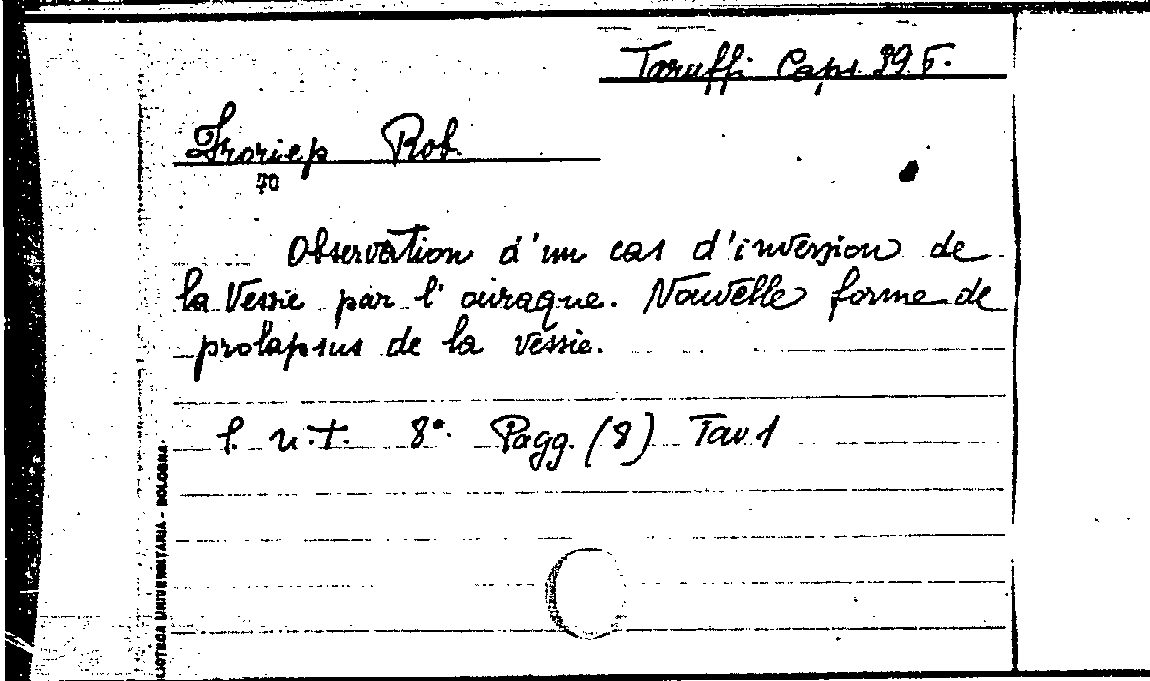 Taruffi Caps. 39 5.
Froriep Rob.
70
Observation d'un cas d'inversion de
la Vessie par l'ouraque. Nouvelle forme de
prolapsus de la vessie.
s. n. t. 8°. Pagg. (8) Tav 1
BIBLIOTECA UNIVERSITARIA - BOLOGNA